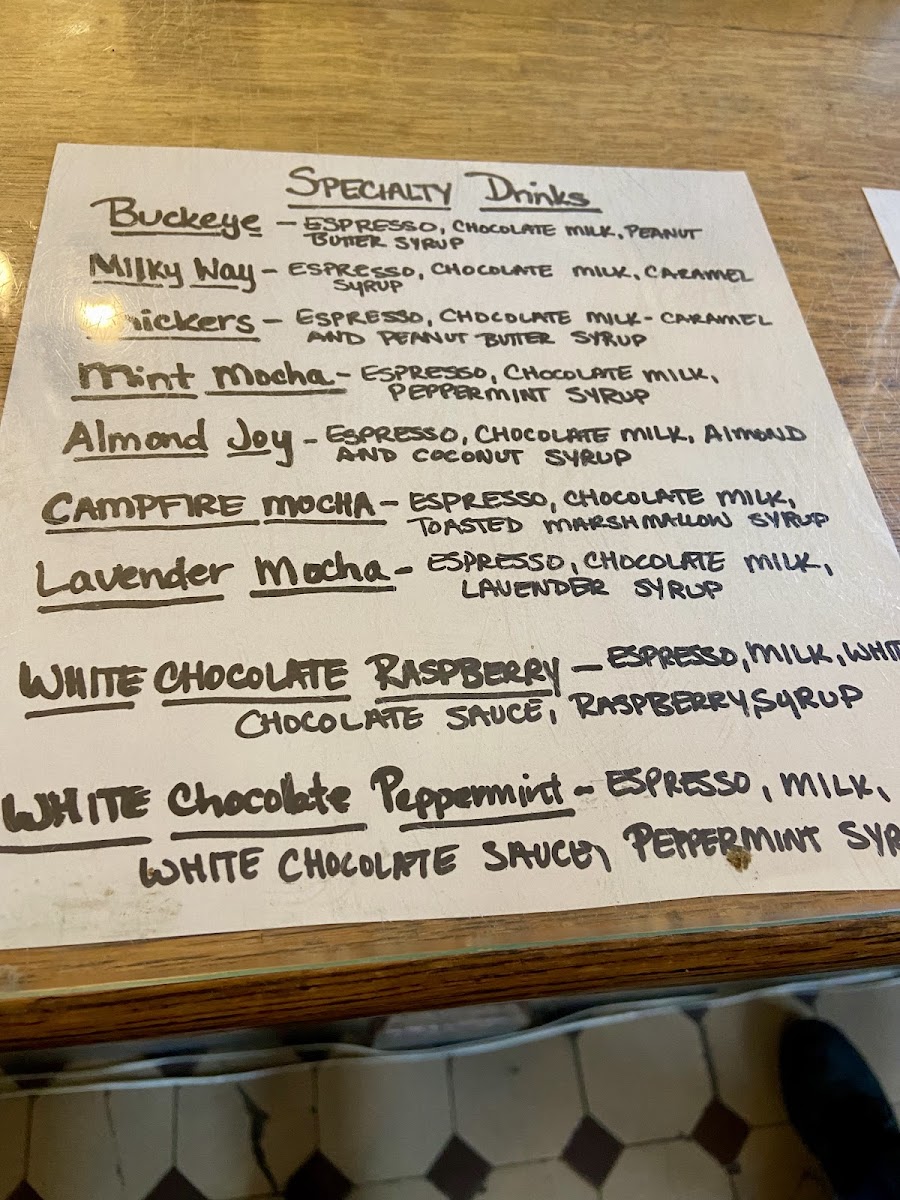 SPECIALTY Drinks
Buckeye – ESPRESSO, CHOCOLATE MILK, PEANUT
BUTTER SYRUP
Milky Way – ESPRESSO, CHOCOLATE MILK, CARAMEL
SYRUP
nickers – ESPRESSO, CHOCOLATE MILK - CARAMEL
AND PEANUT BUTTER SYRUP
Mint Mocha – ESPRESSO, CHOCOLATE MILK,
PEPPERMINT SYRUP
Almond Joy – ESPRESSO, CHOCOLATE MILK, ALMOND
AND COCONUT SYRUP
CAMPFIRE MOCHA – ESPRESSO, CHOCOLATE MILK,
TOASTED MARSHMALLOW SYRUP
Lavender Mocha – ESPRESSO, CHOCOLATE MILK,
LAVENDER SYRUP
WHITE CHOCOLATE RASPBERRY – ESPRESSO, MILK, WHIT
CHOCOLATE SAUCE, RASPBERRY SYRUP
WHITE Chocolate Peppermint – ESPRESSO, MILK,
WHITE CHOCOLATE SAUCE, PEPPERMINT SYR